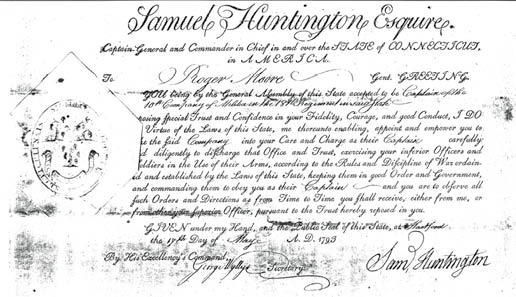 Samuel Huntington Esquire.
Captain-General and Commander in Chief in and over the STATE of CONNECTICUT,
in AMERICA.
To Roger Moore Gent. GREETING.
YOU being by the General Assembly of this State accepted to be Captain of the
10th Company of Militia in the 18th Regiment in said State
posing Special Trust and Confidence in your Fidelity, Courage, and good Conduct, I DO
Virtue of the Laws of this State, me thereunto enabling, appoint and empower you to
the said Company into your Care and Charge as their Captain carefully
d diligently to discharge that Office and Trust, exercising your inferior Officers and
oldiers in the Use of their Arms, according to the Rules and Discipline of War ordain-
ed and established by the Laws of this State, keeping them in good Order and Government,
and commanding them to obey you as their Captain and you are to observe all
such Orders and Directions as from Time to Time you shall receive, either from me, or
from other your superior Officer, pursuant to the Trust hereby reposed in you.
GIVEN under my Hand, and the Public Seal of this State, at Hartford
the 17th Day of May A. D. 1793
By His Excellency's Command,
George Wyllys Secretary
Sam Huntington